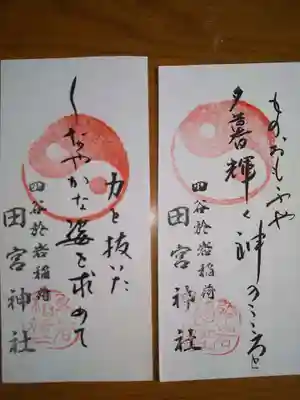 ものおもふや
夕暮輝く神のこころを
四谷於岩稲荷
田宮神社
力を抜いた
しなやかな姿を求めて
四谷於岩稲荷
田宮神社